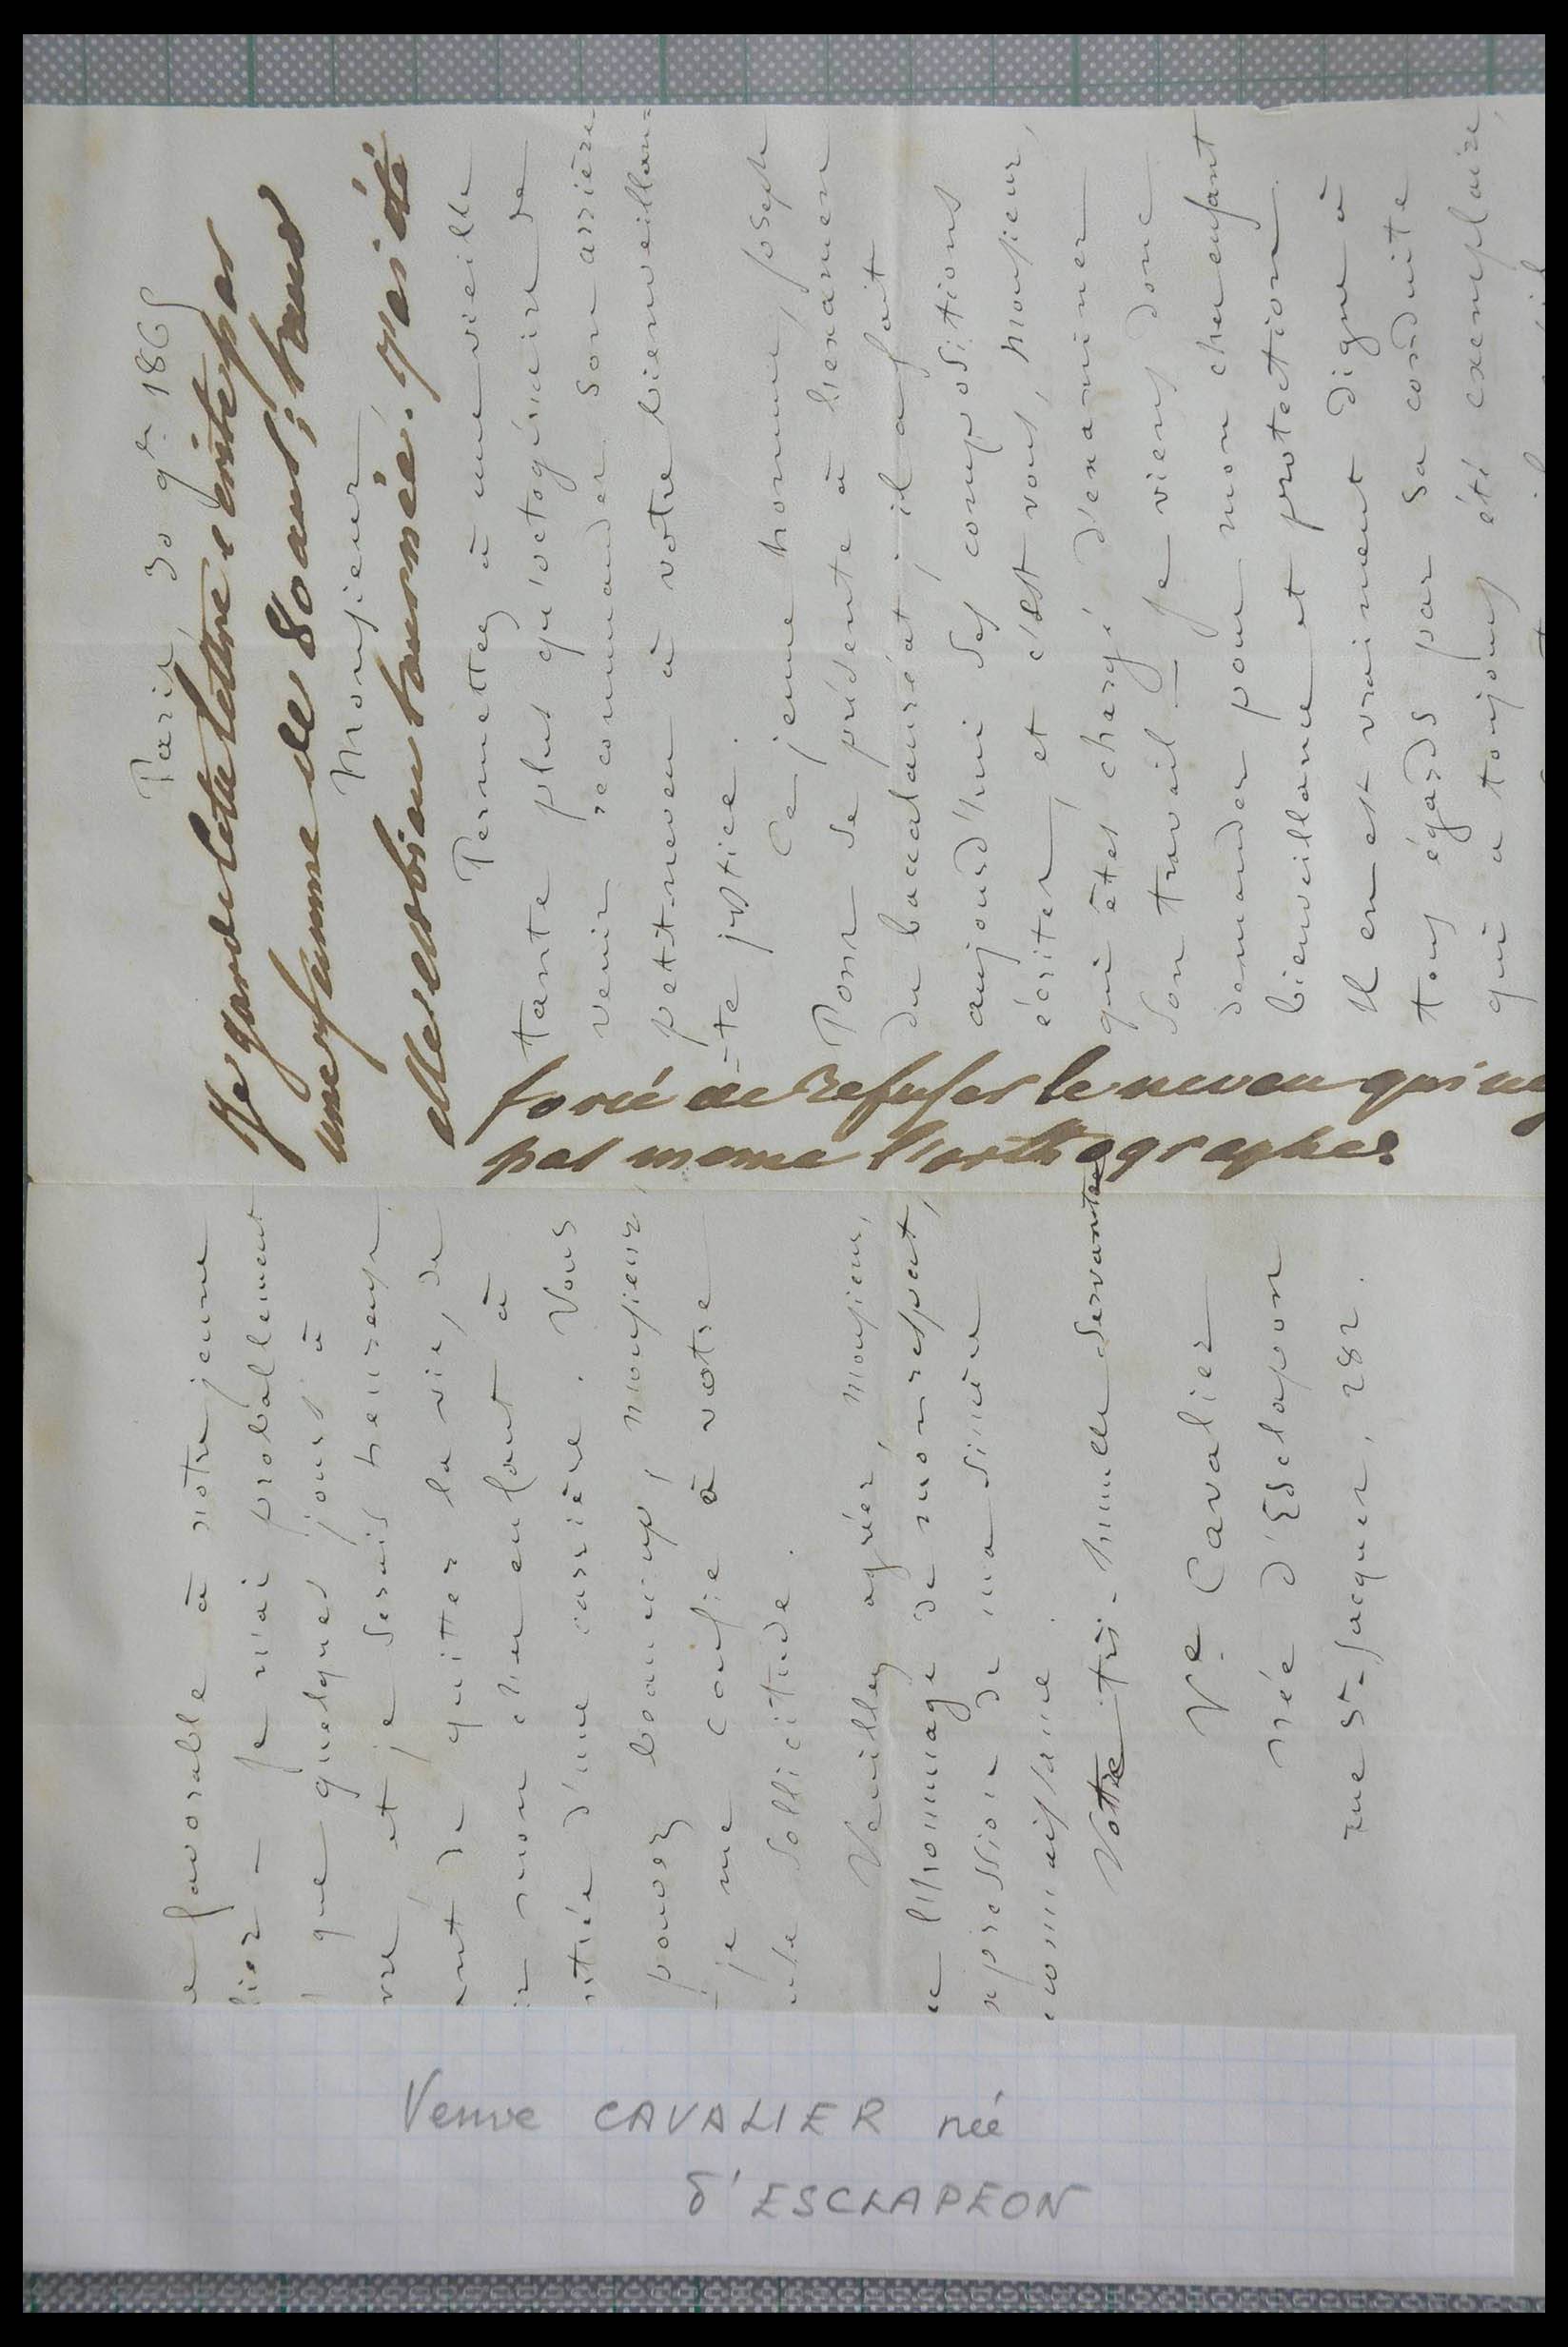 Paris, 30 9bre 1865
Je garde cette lettre écrite par
une femme de 80 ans; tous
Monsieur,
elle est si bien tournée. J'ai été
forcé de refuser le neveu qui ne
pas meme l'orthographe.
Permettez à une vieille
tante plus qu'octogénaire de
venir recommander son arrière
petit neveu à votre bienveillan=
=te justice.
Ce jeune homme, Joseph
Pons se présente à l'examen
du baccalauréat; il a fait
aujourd'hui ses compositions
écrites, et c'est vous, Monsieur,
qui êtes chargé d'examiner
son travail — Je viens donc
demander pour mon cher enfant
bienveillance et protection.
Il en est vraiment digne à
tous égards par sa conduite
qui a toujours été exemplaire,
e favorable à notre jeune
lier — Je n'ai probablement
que quelques jours à
vre et je serais heureuse
ant de quitter la vie, de
r mon cher enfant à
ntrée d'une carrière. Vous
pouvez beaucoup, Monsieur,
je me confie à votre
sollicitude.
Veuillez agréer, Monsieur,
l'hommage de mon respect,
xpression de ma sincère
connaissance.
Votre très-humble servante
Ve Cavalier
née d'Esclapon
rue St-Jacques, 282.
Veuve CAVALIER née
d'ESCLAPEON